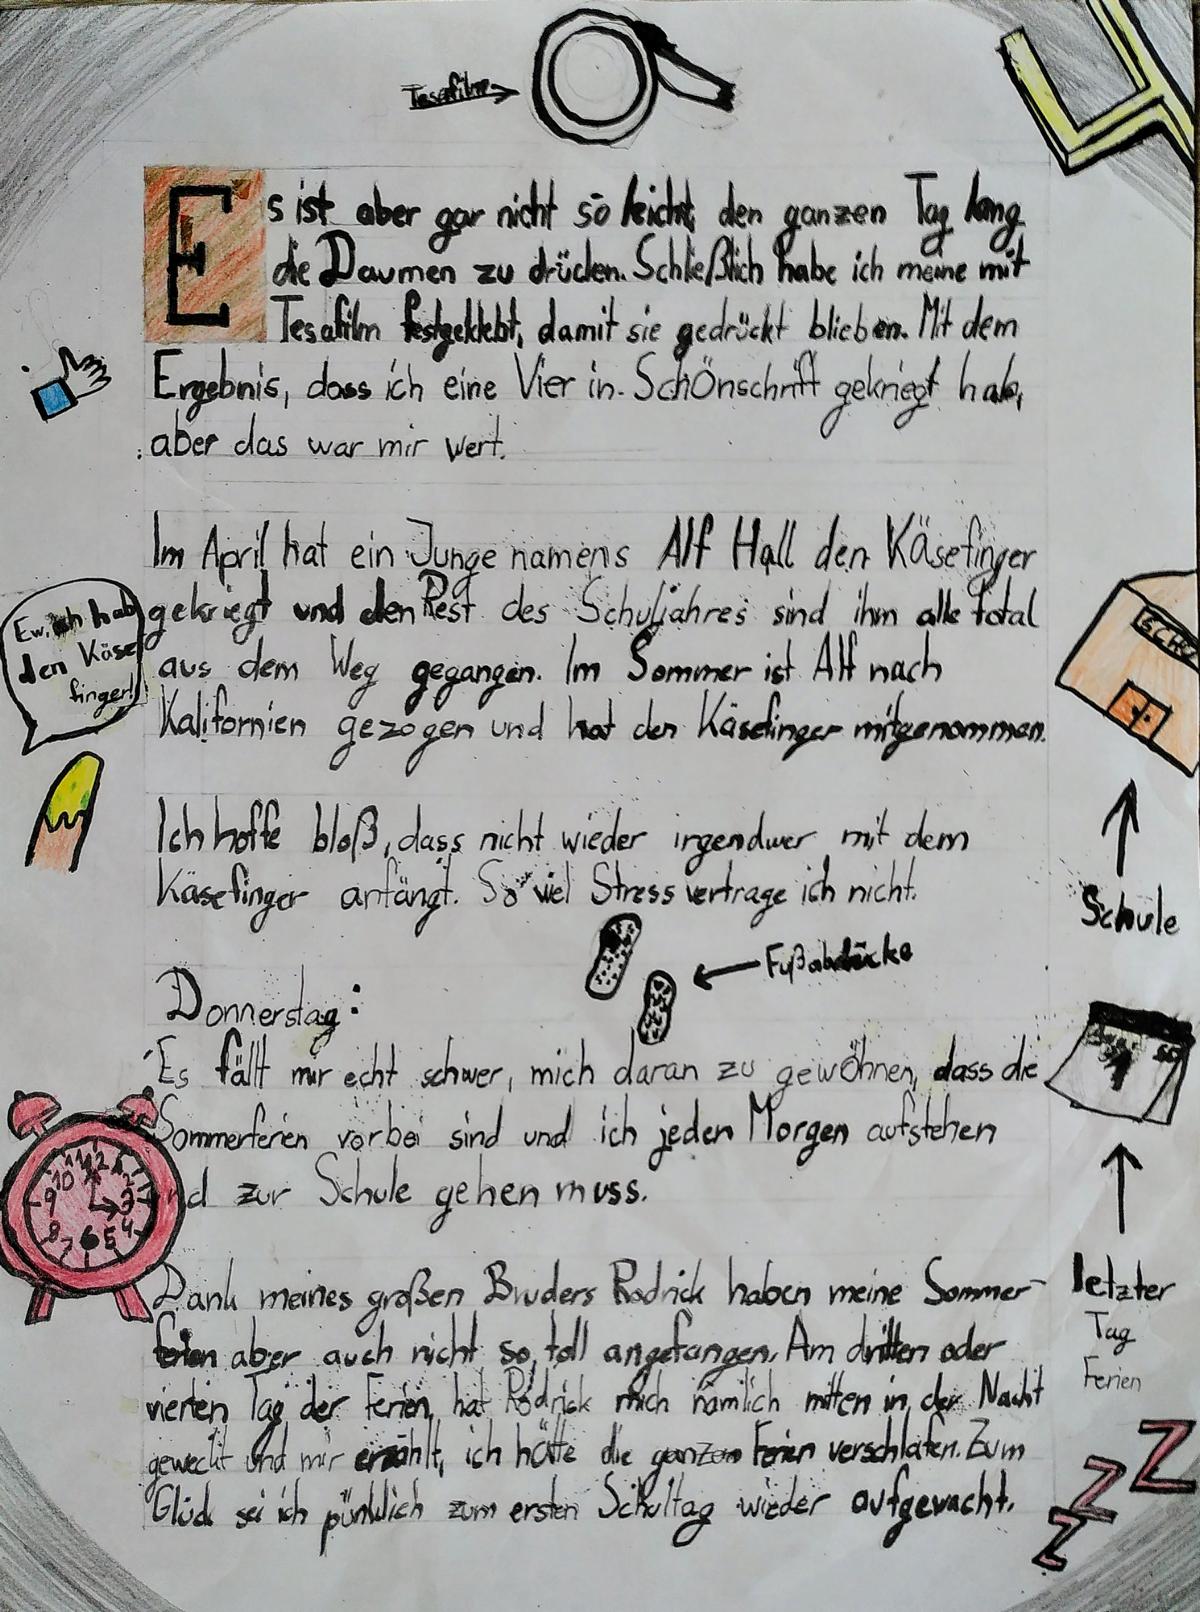 Tesafilm
Es ist aber gar nicht so leicht, den ganzen Tag lang
die Daumen zu drücken. Schließlich habe ich meine mit
Tesafilm festgeklebt, damit sie gedrückt blieben. Mit dem
Ergebnis, dass ich eine Vier in SchÖnschrift gekriegt hab,
aber das war mir wert.
Im April hat ein Junge namens Alf Hall den Käsefinger
gekriegt und den Rest des Schuljahres sind ihm alle total
aus dem Weg gegangen. Im Sommer ist Alf nach
Kalifornien gezogen und hat den Käsefinger mitgenommen.
Ew, ich hab
den Käse
finger!
Ich hoffe bloß, dass nicht wieder irgendwer mit dem
Käsefinger anfängt. So viel Stress vertrage ich nicht.
Fußabdrücke
Donnerstag:
Es fällt mir echt schwer, mich daran zu gewöhnen, dass die
Sommerferien vorbei sind und ich jeden Morgen aufstehen
nd zur Schule gehen muss.
Dank meines großen Bruders Rodrick haben meine Sommer-
ferien aber auch nicht so toll angefangen. Am dritten oder
vierten Tag der Ferien, hat Rodrick mich nämlich mitten in der Nacht
geweckt und mir erzählt, ich hätte die ganzen Ferien verschlafen. Zum
Glück sei ich pünktlich zum ersten Schultag wieder aufgewacht.
4
SCHU
Schule
letzter
Tag
Ferien
Z
Z
Z
12
1
2
3
4
5
6
7
8
9
10
11